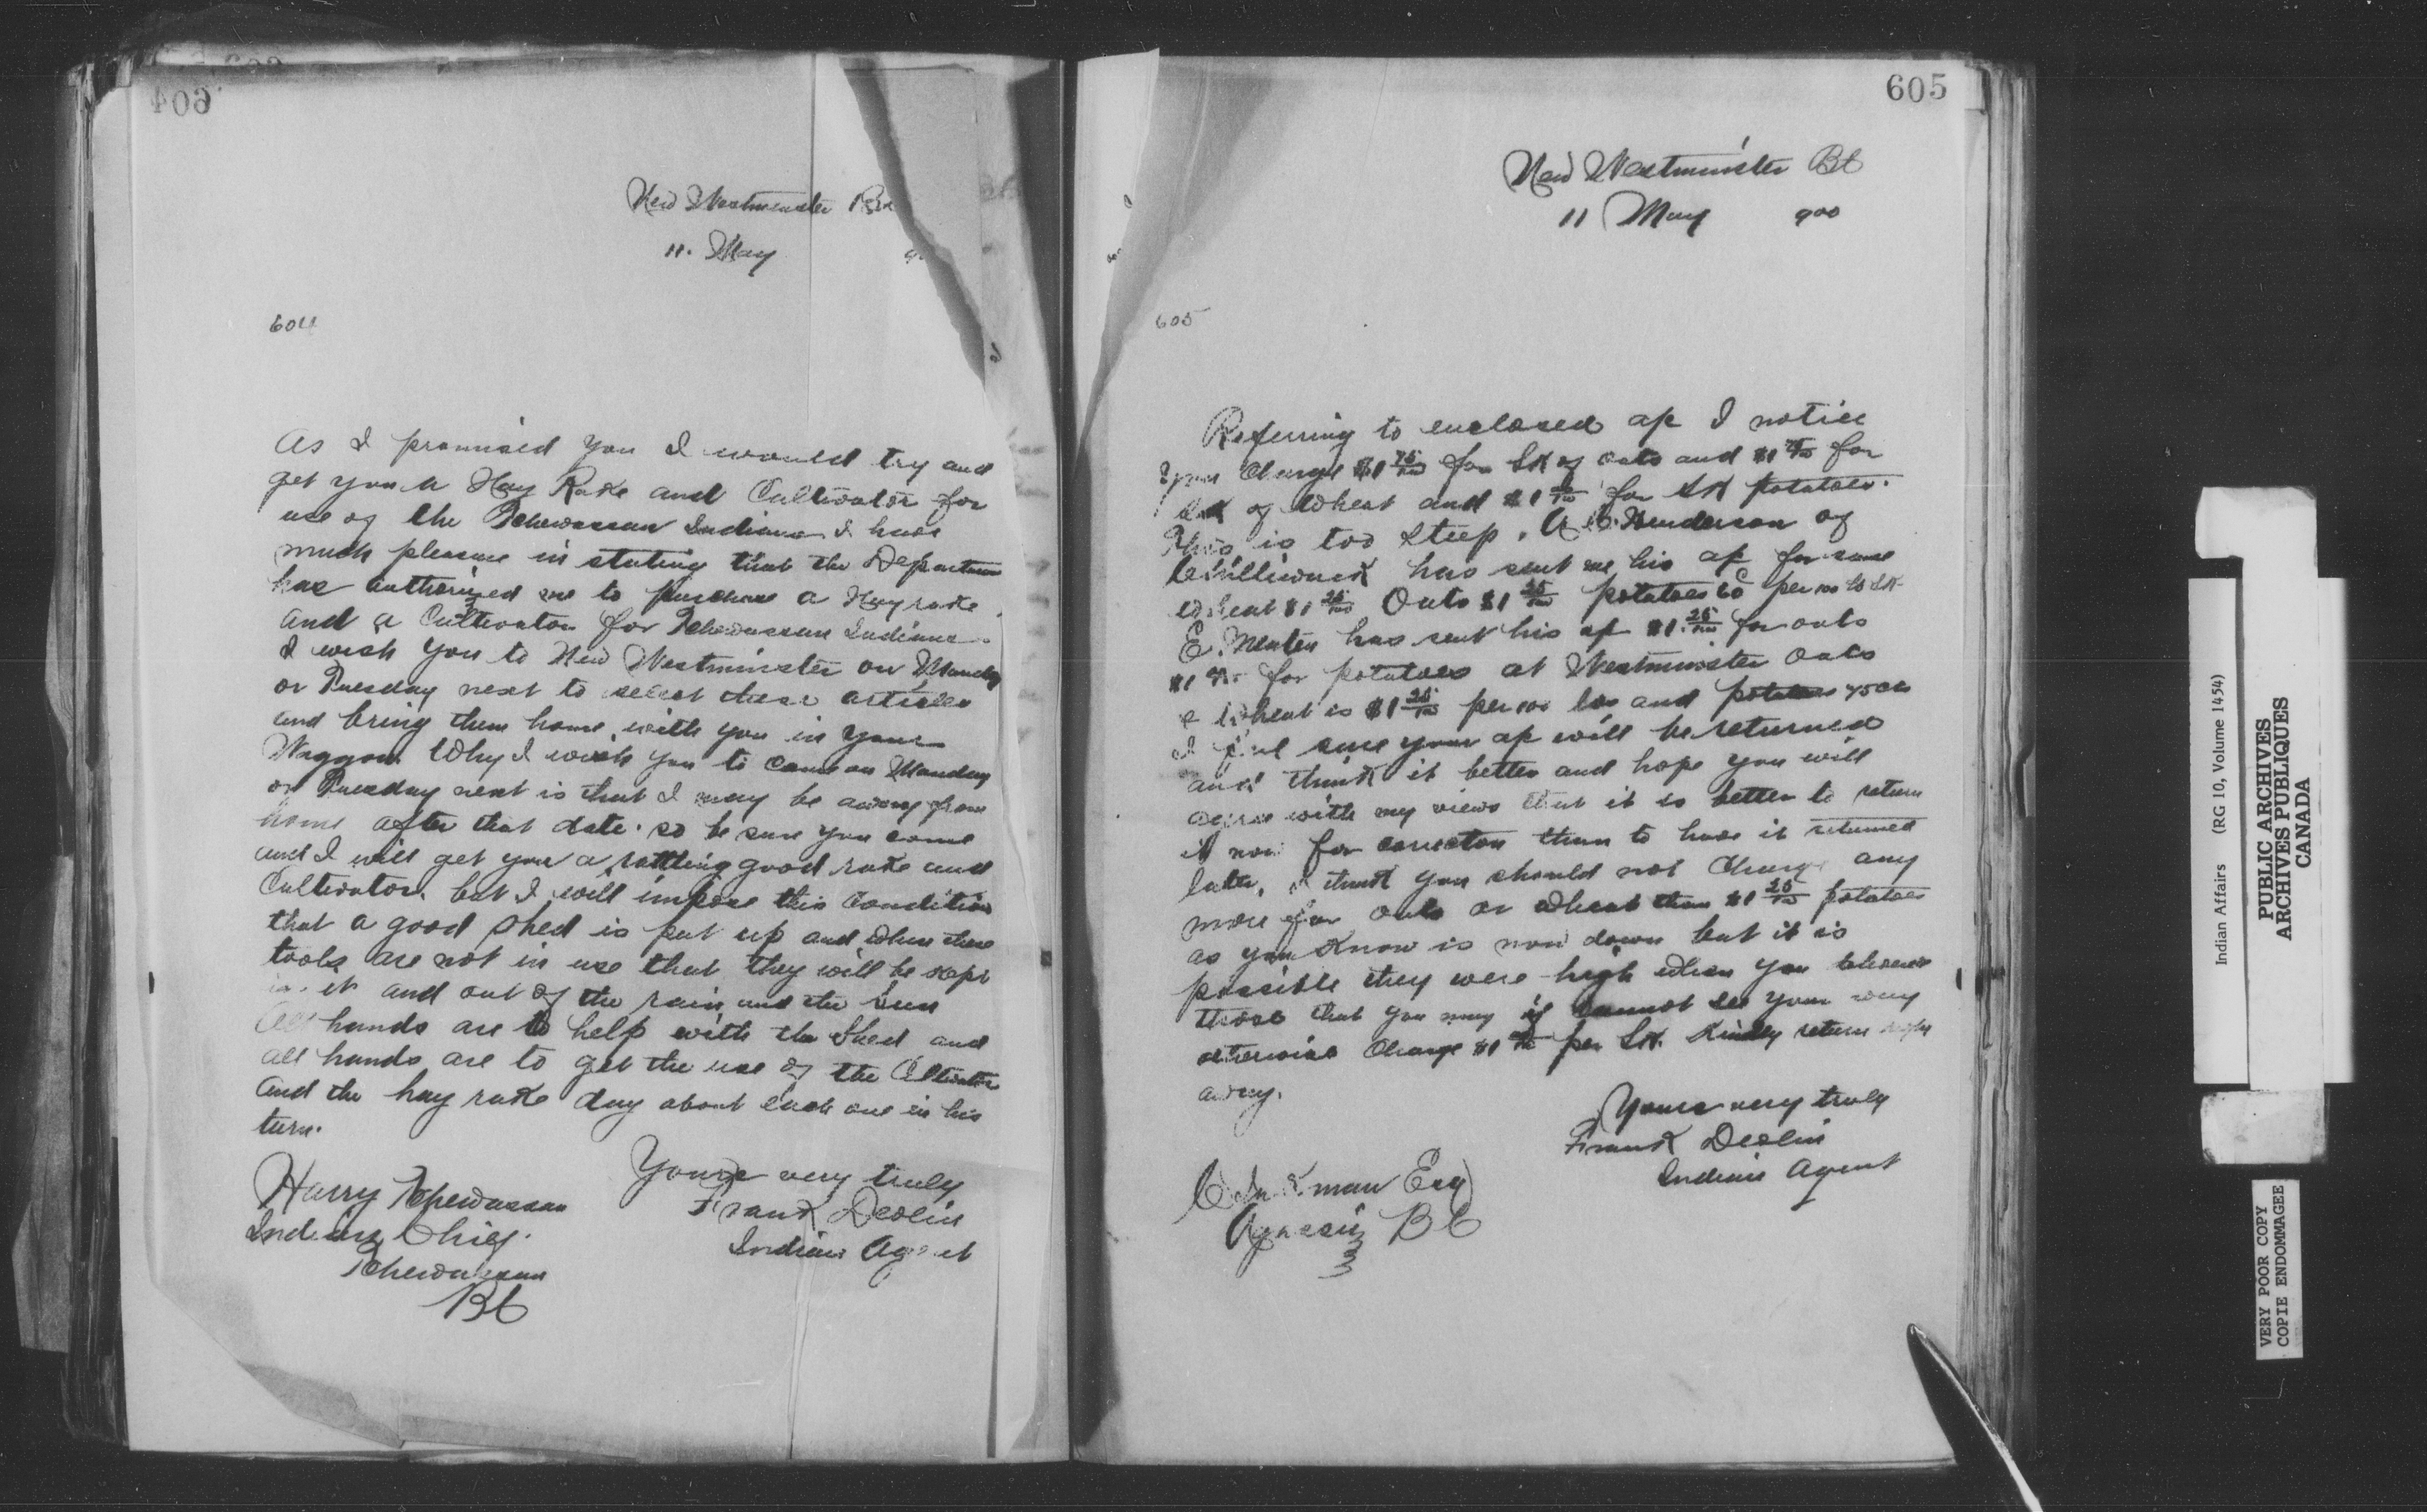 604
New Westminster
11. May
604
As I promised you I would try and
get you a Hay Rake and Cultivator for
use of the Tchewassan Indians I have
much pleasure in stating that the Department
has authorized me to purchase a Hay rake
and a Cultivator for Tchewassan Indians.
I wish you to New Westminster on Monday
or Tuesday next to select these articles
and bring them home with you in your
Waggon. Why I wish you to come on Monday
or Tuesday next is that I may be away from
home after that date. so be sure you come
and I will get you a rattling good rake and
Cultivator. but I will impose this condition
that a good shed is put up and when these
tools are not in use that they will be kept
in it and out of the rain and the sun
All hands are to help with the Shed and
all hands are to get the use of the Cltivator
and the hay rake day about each one in his
turn.
Yours very truly
Frank Devlin
Indian Agent
Harry Tchewassan
Indian Chief.
Tchewassan
BC
605
New Westminster BC
11 May 900
605
Referring to enclosed ap I notice
you Charge $1 75/100 for SK of oats and $1 75/100 for
of wheat and $1 for SK potatoes.
This is too steep. A C. Henderson of
Chilliwack has sent me his ap for same
wheat $1 25/100 Oats $1 25/100 potatoes 60 per 100 lb SK
E. has sent his ap $1. 25/100 for oats
$1 for potatoes at Westminster Oats
& wheat is $1 25/100 per 100 lbs and potatoes 75 cts
I feel sure your ap will be returned
and think it better and hope you will
agree with my views that it is better to return
it now for correcton than to have it returned
later, I think you should not Charge any
more for oats or wheat than $1 25/100 potatoes
as you Know is now down but it is
possible they were high when you
those that you may if cannot see your way
otherwise Charge $1 per SK. Kindly return right
away.
Yours very truly
Frank Devlin
Indian Agent
Esq
Agassiz BC
Indian Affairs (RG 10, Volume 1454)
PUBLIC ARCHIVES
ARCHIVES PUBLIQUES
CANADA
VERY POOR COPY
COPIE ENDOMMAGEE